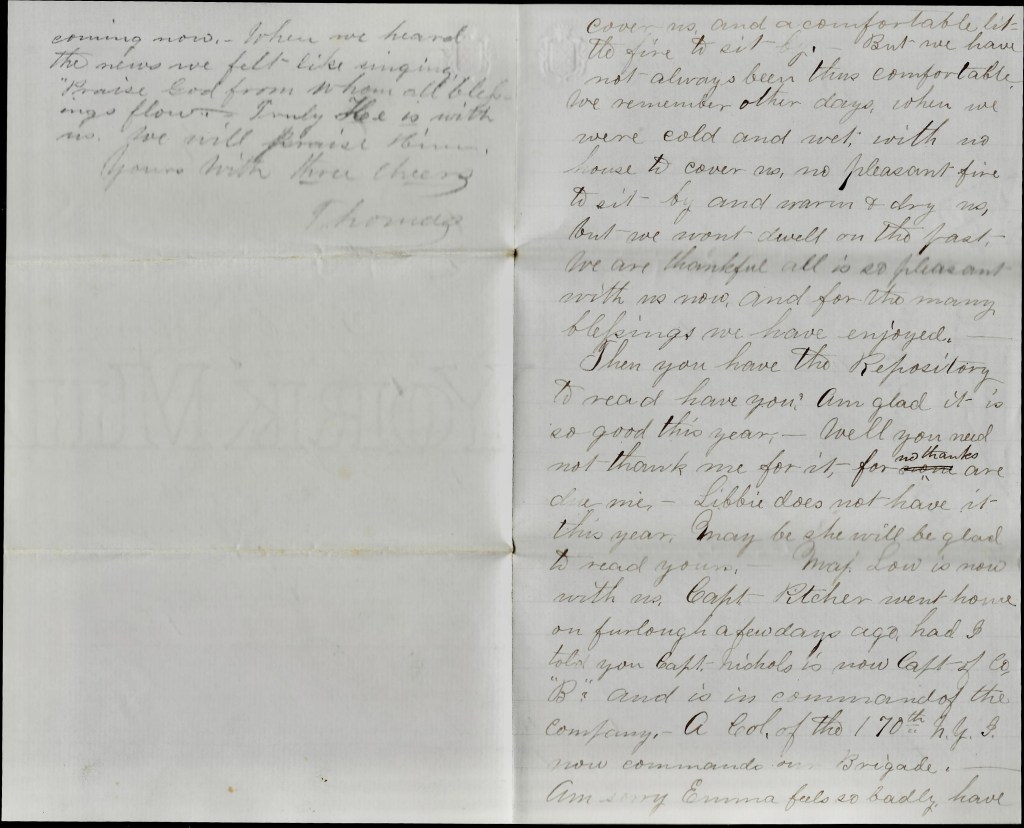 coming now. - When we heard
the news we felt like singing,
"Praise God from Whom all bless-
ings flow". Truly He is with
us. We will Praise Him.
Yours With three Cheers
Thomas
cover us, and a comfortable lit-
tle fire to sit by. - But we have
not always been thus comfortable,
We remember other days, when we
were cold and wet, with no
house to cover us, no pleasant fire
to sit by and warm & dry us,
but we wont dwell on the past. -
We are thankful all is so pleasant
with us now, and for the many
blessings we have enjoyed. -
Then you have the Repository
to read have you? Am glad it is
so good this year, - Well you need
not thank me for it, for no thanks are
due me. - Libbie does not have it
this year. May be she will be glad
to read yours. - Maj. Low is now
with us. Capt went home
on furlough a few days ago, had I
told you Capt Nichols is now Capt of Co,
"B"? and is in command of the
company. - A Col. of the 170th N.Y.I.
now commands our Brigade. -
Am sorry Emma feels so badly, have